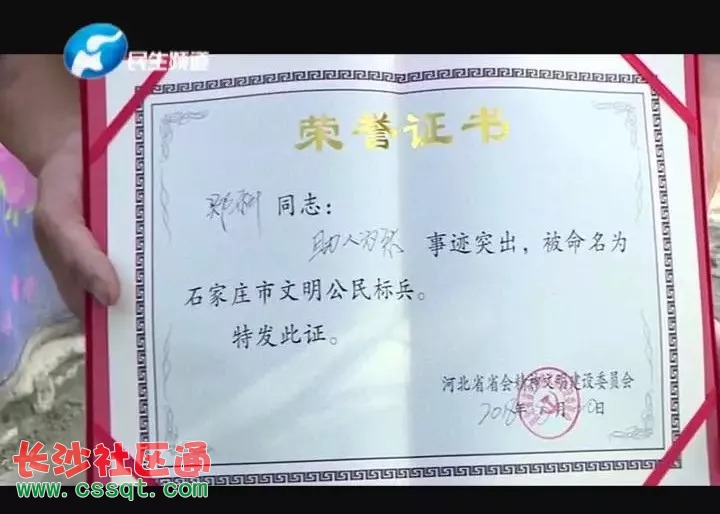 民生频道
荣誉证书
同志：
助人为乐 事迹突出，被命名为
石家庄市文明公民标兵。
特发此证。
河北省省会精神文明建设委员会
2018年 月 10日
长沙社区通
www.cssqt.com